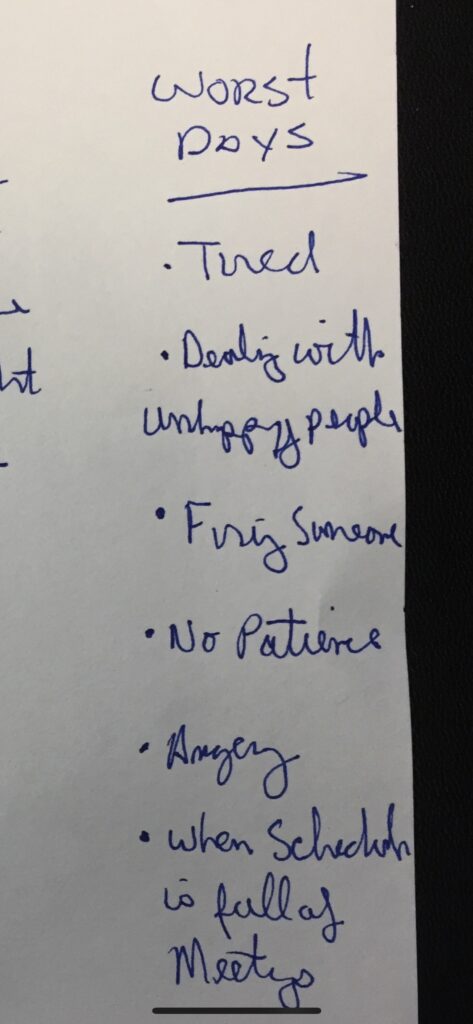 Worst
Days
• Tired
• Dealing with
unhappy people
• Firing Someone
• No Patience
• Angery
• When Schedule
is full of
Meetings